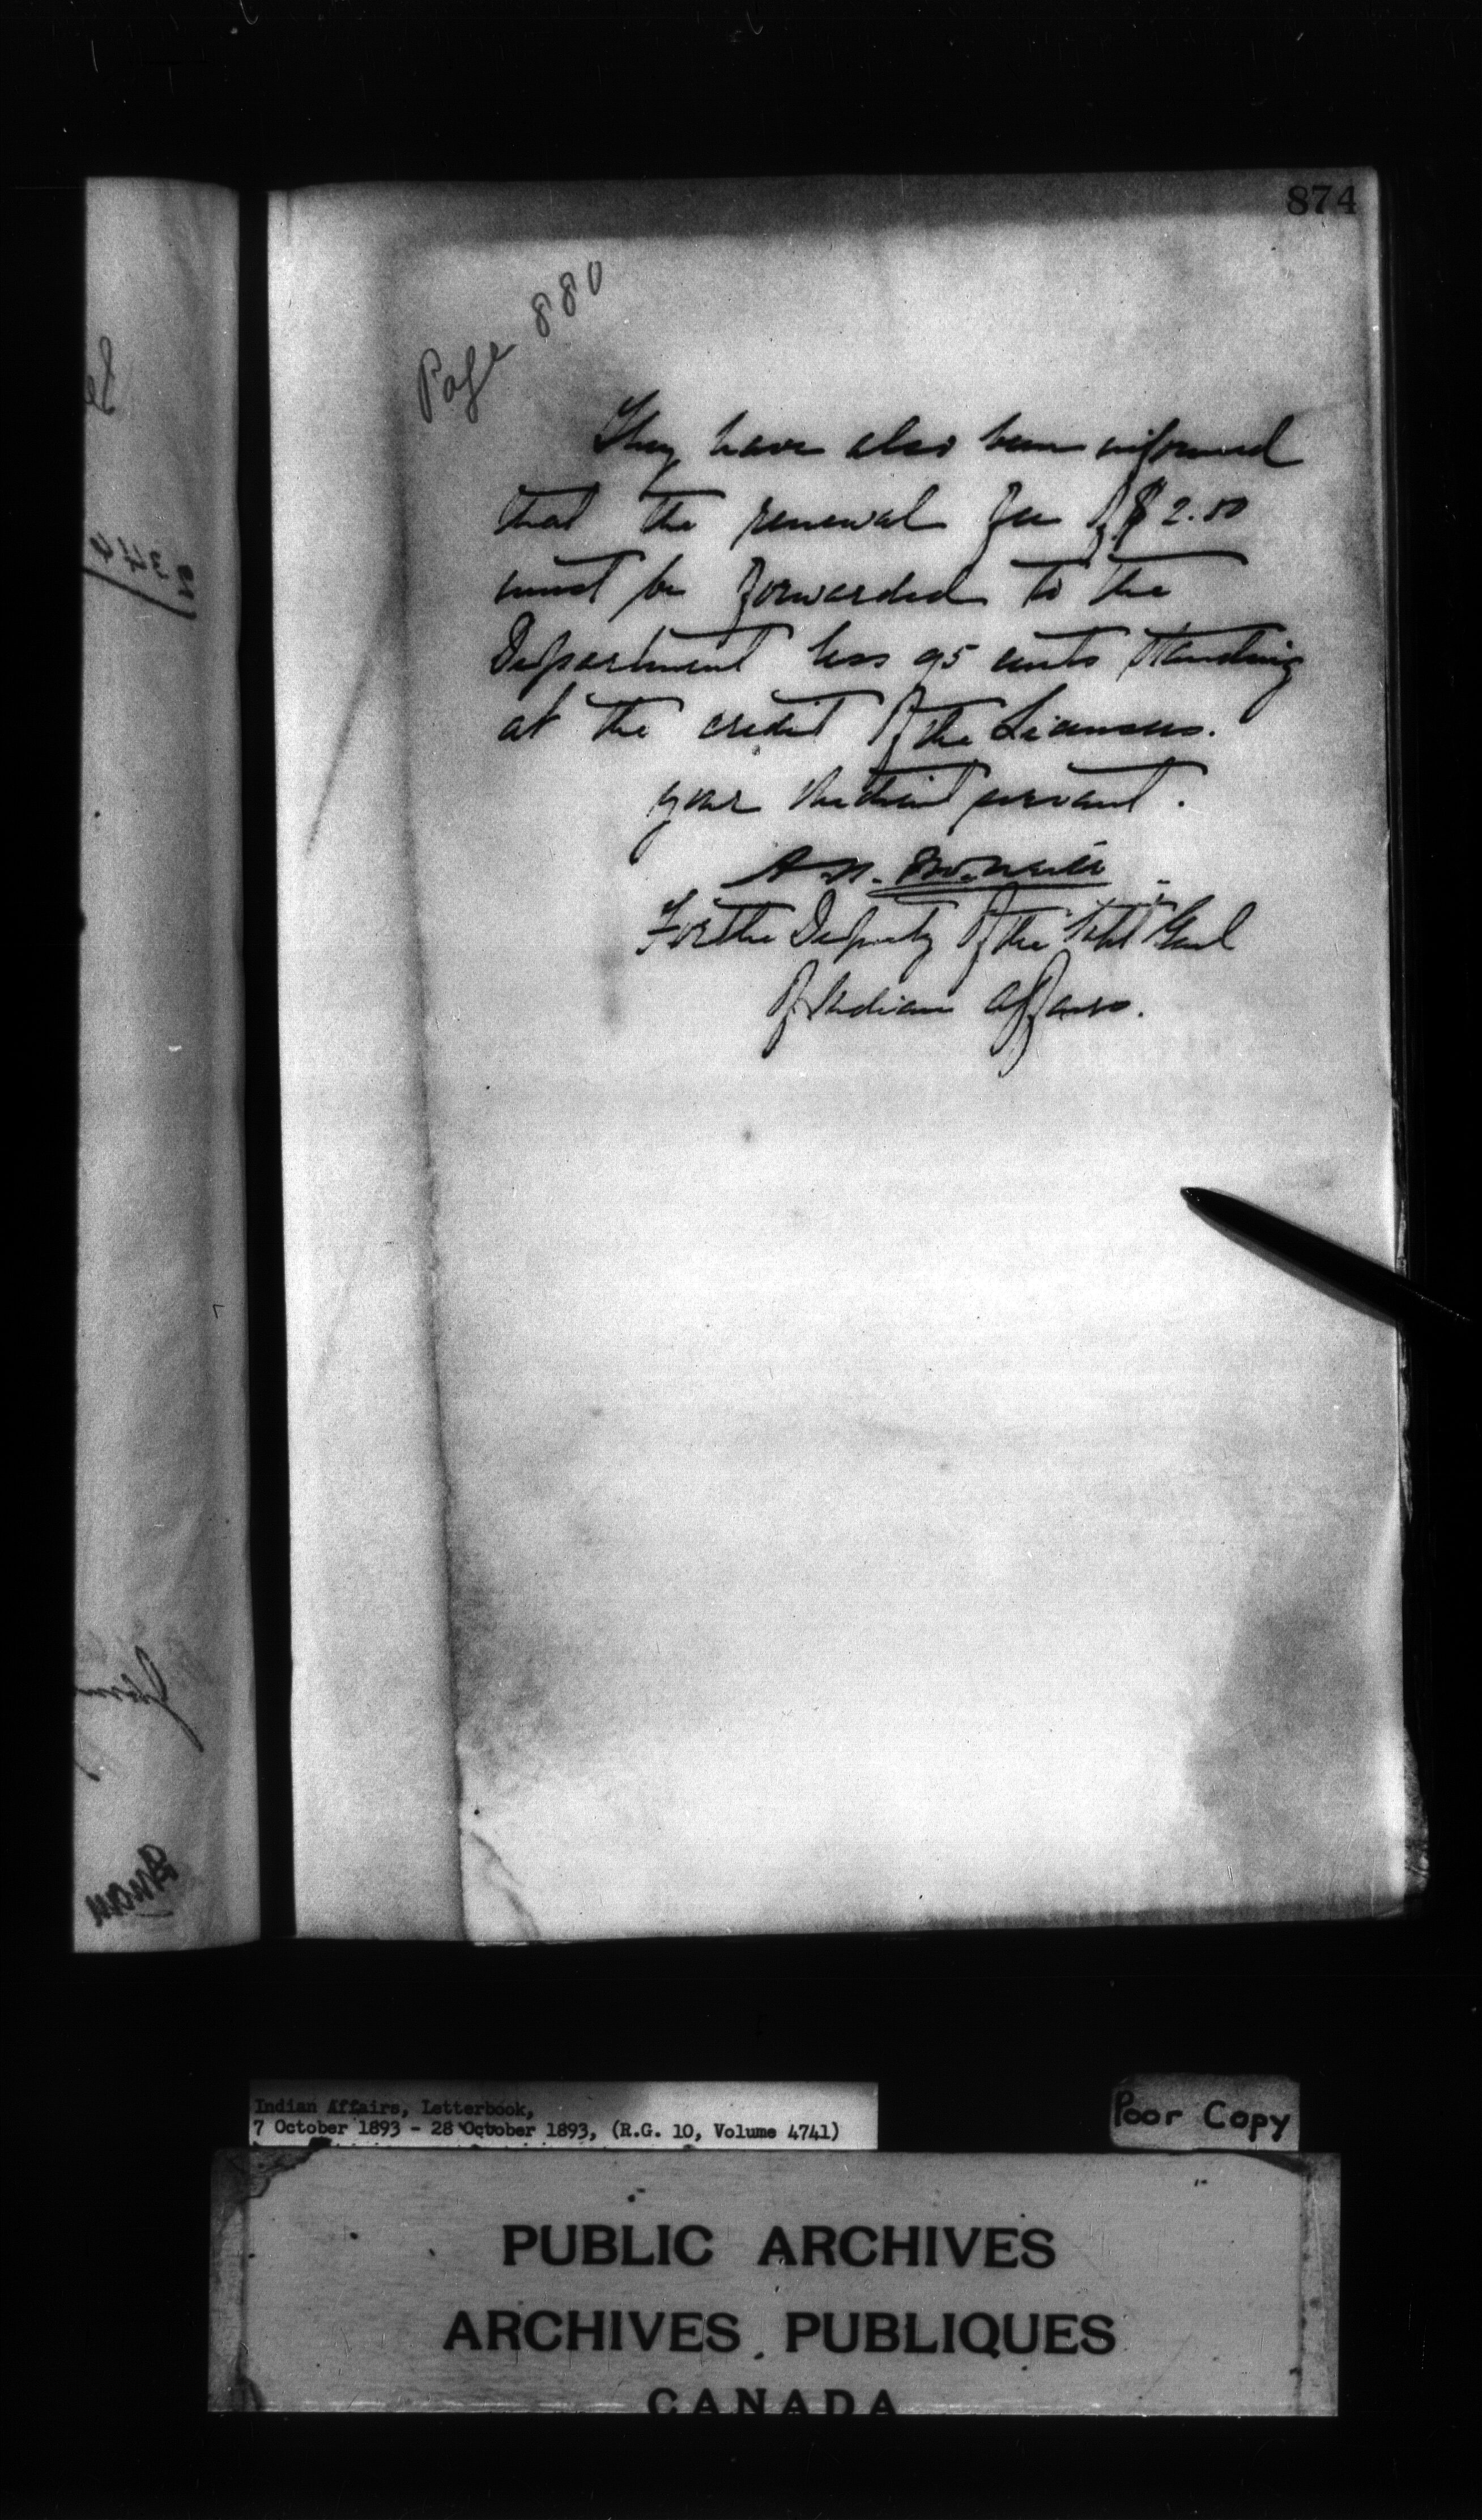 874
Page 880
They have also been informed
that the renewal fee of $2.00
must be forwarded to the
Department less 95 cents standing
at the credit of the Licensees.
your obedient servant.
A. N. McNeill
For the Deputy of the Supt Genl
of Indian Affairs.
Indian Affairs, Letterbook,
7 October 1893 - 28 October 1893, (R.G. 10, Volume 4741)
Poor Copy
PUBLIC ARCHIVES
ARCHIVES PUBLIQUES
CANADA